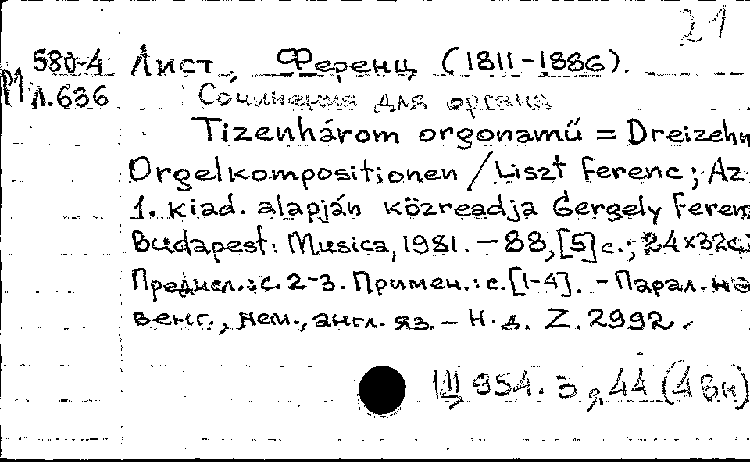 21
580-4 Лист, Ференц (1811-1886).
М Л.636 Сочинения для органа
Tizenhárom orgonamű = Dreizehn
Orgelkompositionen / Liszt Ferenc; Az
1. kiad. alapján közreadja Gergely Feren
Budapest: Musica, 1981. - 88, [5] с.; 24x32с
Предисл.: с. 2-3. Примеч.: с. [1-4]. - Парал. на
венг., нем., англ. яз. - Н. д. Z. 2992.
Щ 954.3 я 44 (4 Вн)